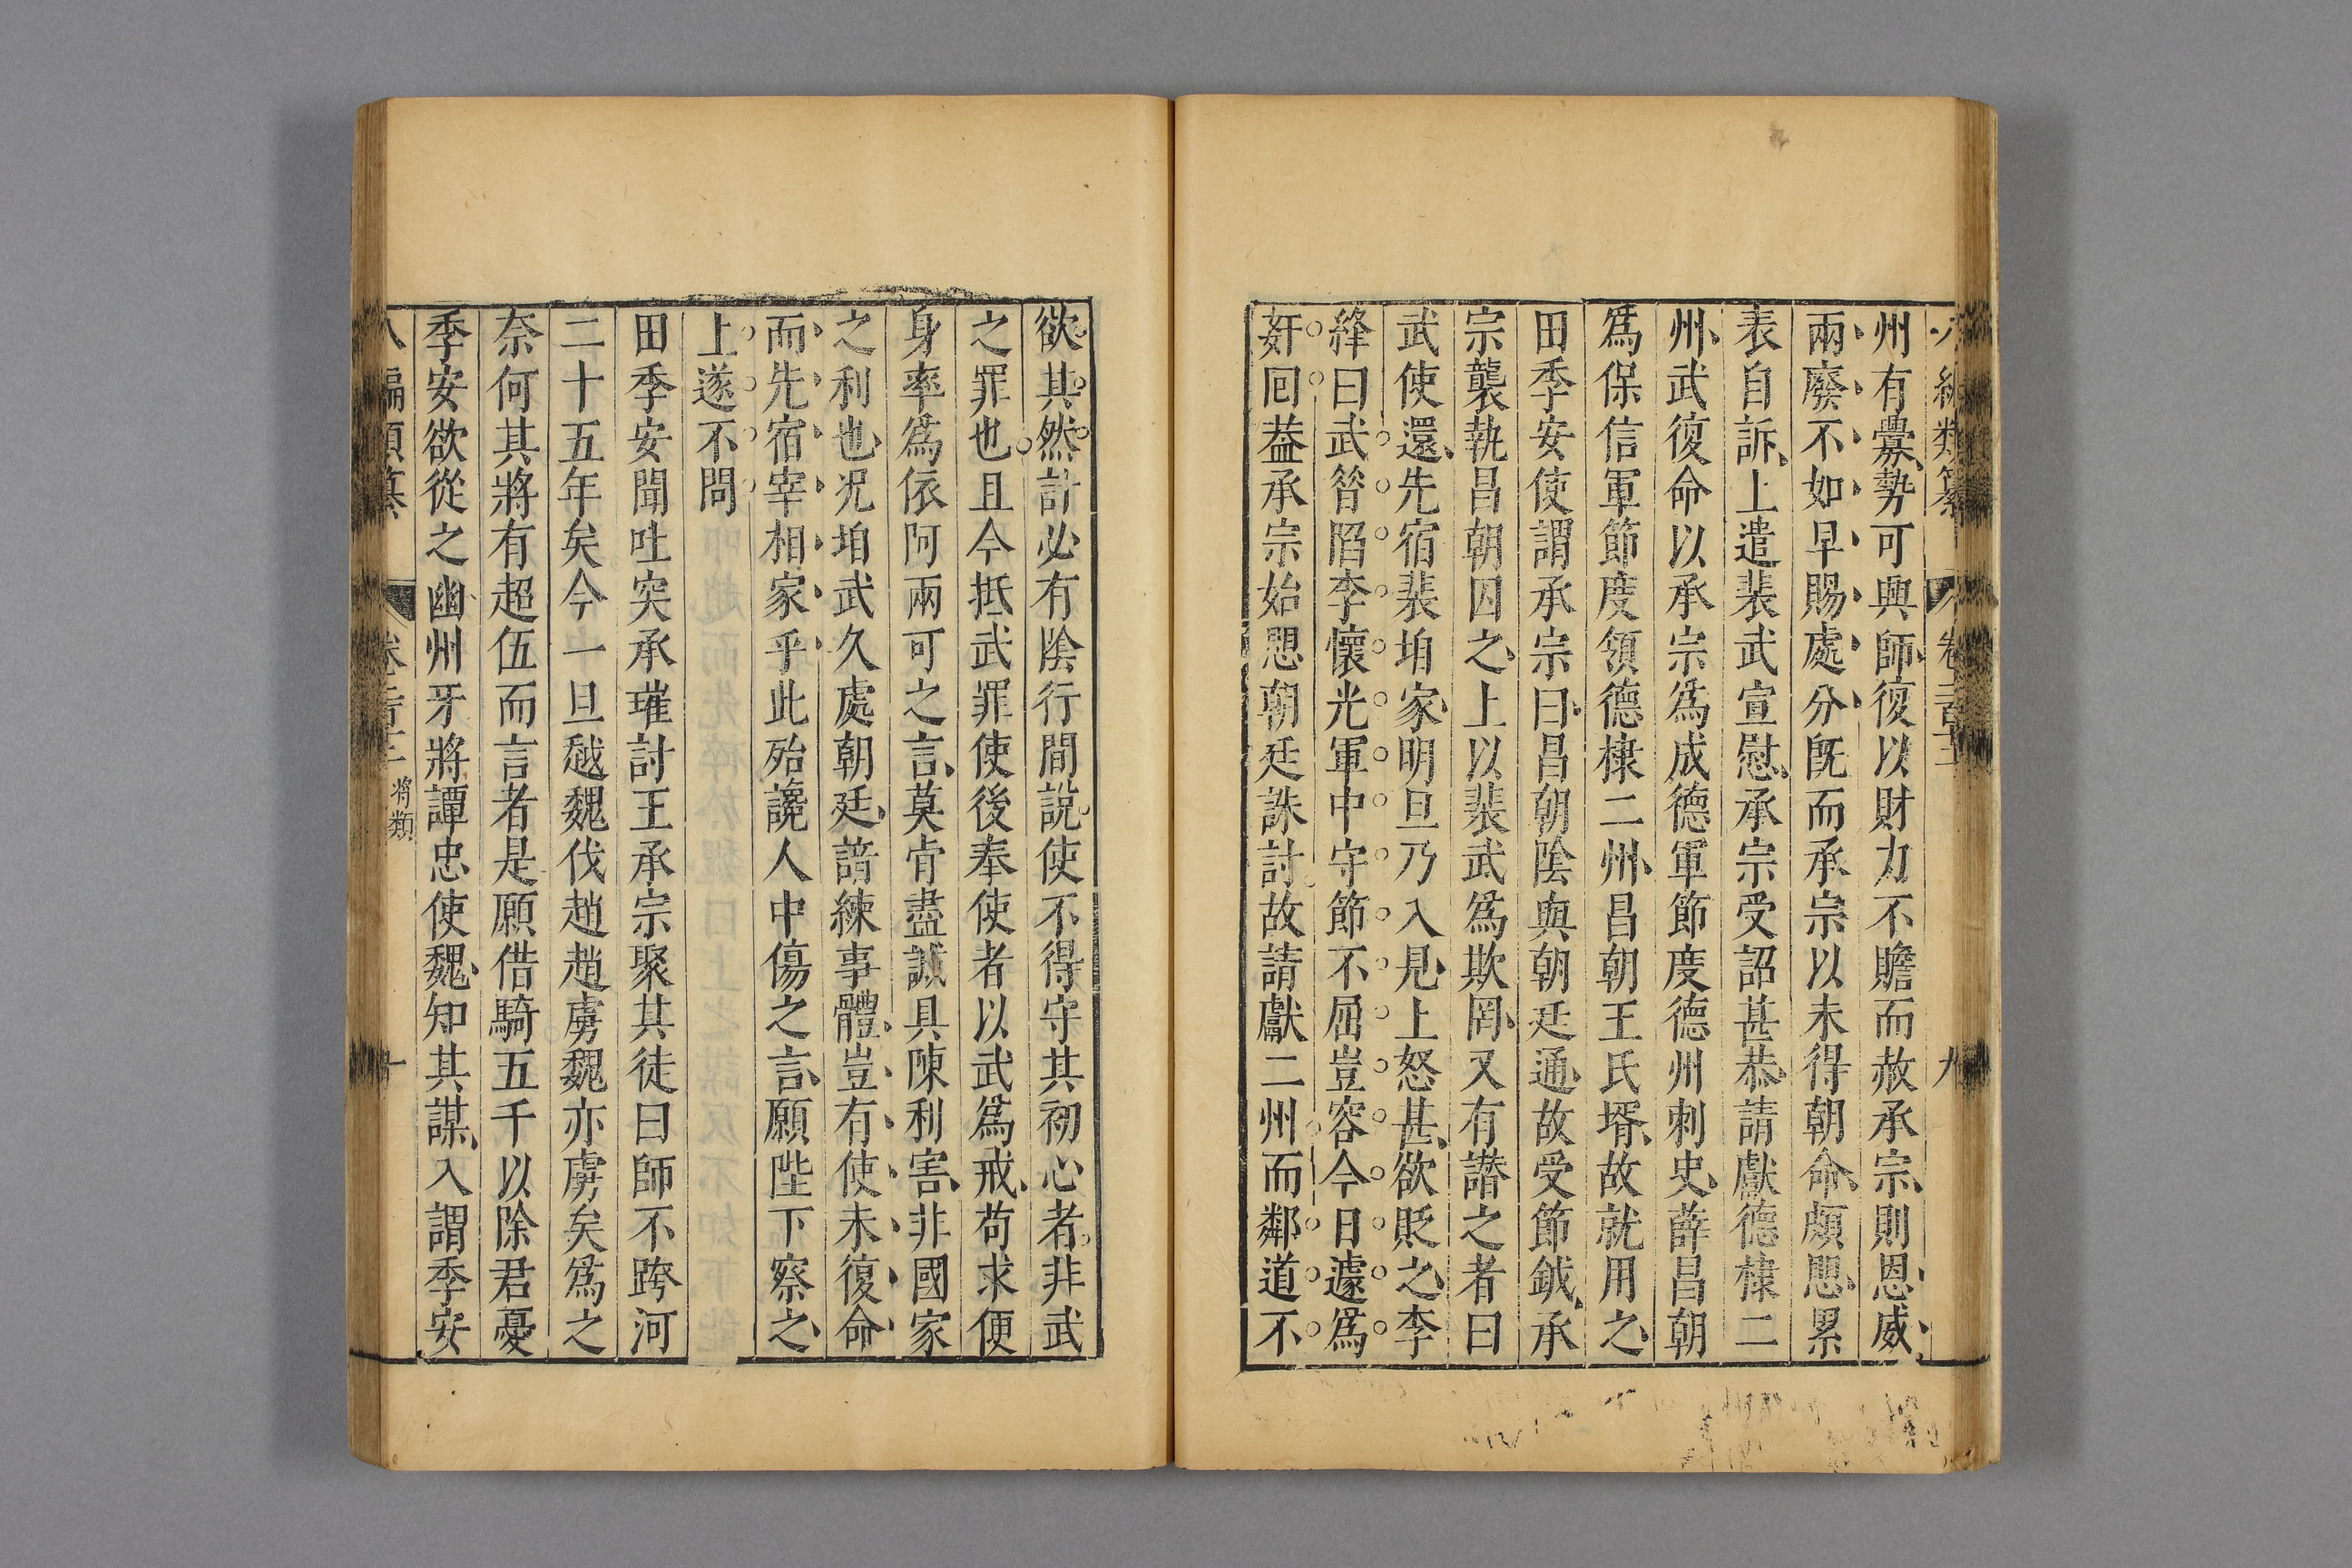 八編類纂 卷二百十二 九
州有釁勢可興師復以財力不贍而赦承宗則恩威
兩廢不如早賜處分旣而承宗以未得朝命頗懼累
表自訴上遣裴武宣慰承宗受詔甚恭請獻德棣二
州武復命以承宗爲成德軍節度德州刺史薛昌朝
爲保信軍節度領德棣二州昌朝王氏壻故就用之
田季安使謂承宗曰昌朝陰與朝廷通故受節鉞承
宗襲執昌朝囚之上以裴武爲欺罔又有譖之者曰
武使還先宿裴垍家明旦乃入見上怒甚欲貶之李
絳曰武昝陷李懷光軍中守節不屈豈容今日遽爲
姦回葢承宗始懼朝廷誅討故請獻二州而鄰道不
欲其然計必有陰行間說使不得守其初心者非武
之罪也且今抵武罪使後奉使者以武爲戒苟求便
身率爲依阿兩可之言莫肯盡誠具陳利害非國家
之利也况垍武久處朝廷諳練事體豈有使未復命
而先宿宰相家乎此殆讒人中傷之言願陛下察之
上遂不問
田季安聞吐突承璀討王承宗聚其徒曰師不跨河
二十五年矣今一旦越魏伐趙趙虜魏亦虜矣爲之
奈何其將有超伍而言者是願借騎五千以除君憂
季安欲從之幽州牙將譚忠使魏知其謀入謂季安
八編類纂 卷二百十二 將類 十